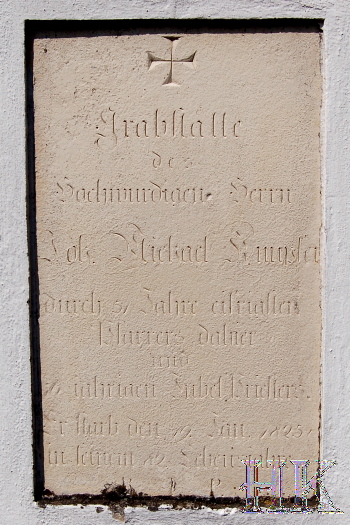 Grabstätte
des
Hochwürdigen Herrn
Joh. Michael
durch 57 Jahre eifrigsten
Pfarrers dahier
und
jährigen Jubel Priesters.
Er starb den 19. Jän. 1825
in seinem Lebensjahre
R. I. P.
HK